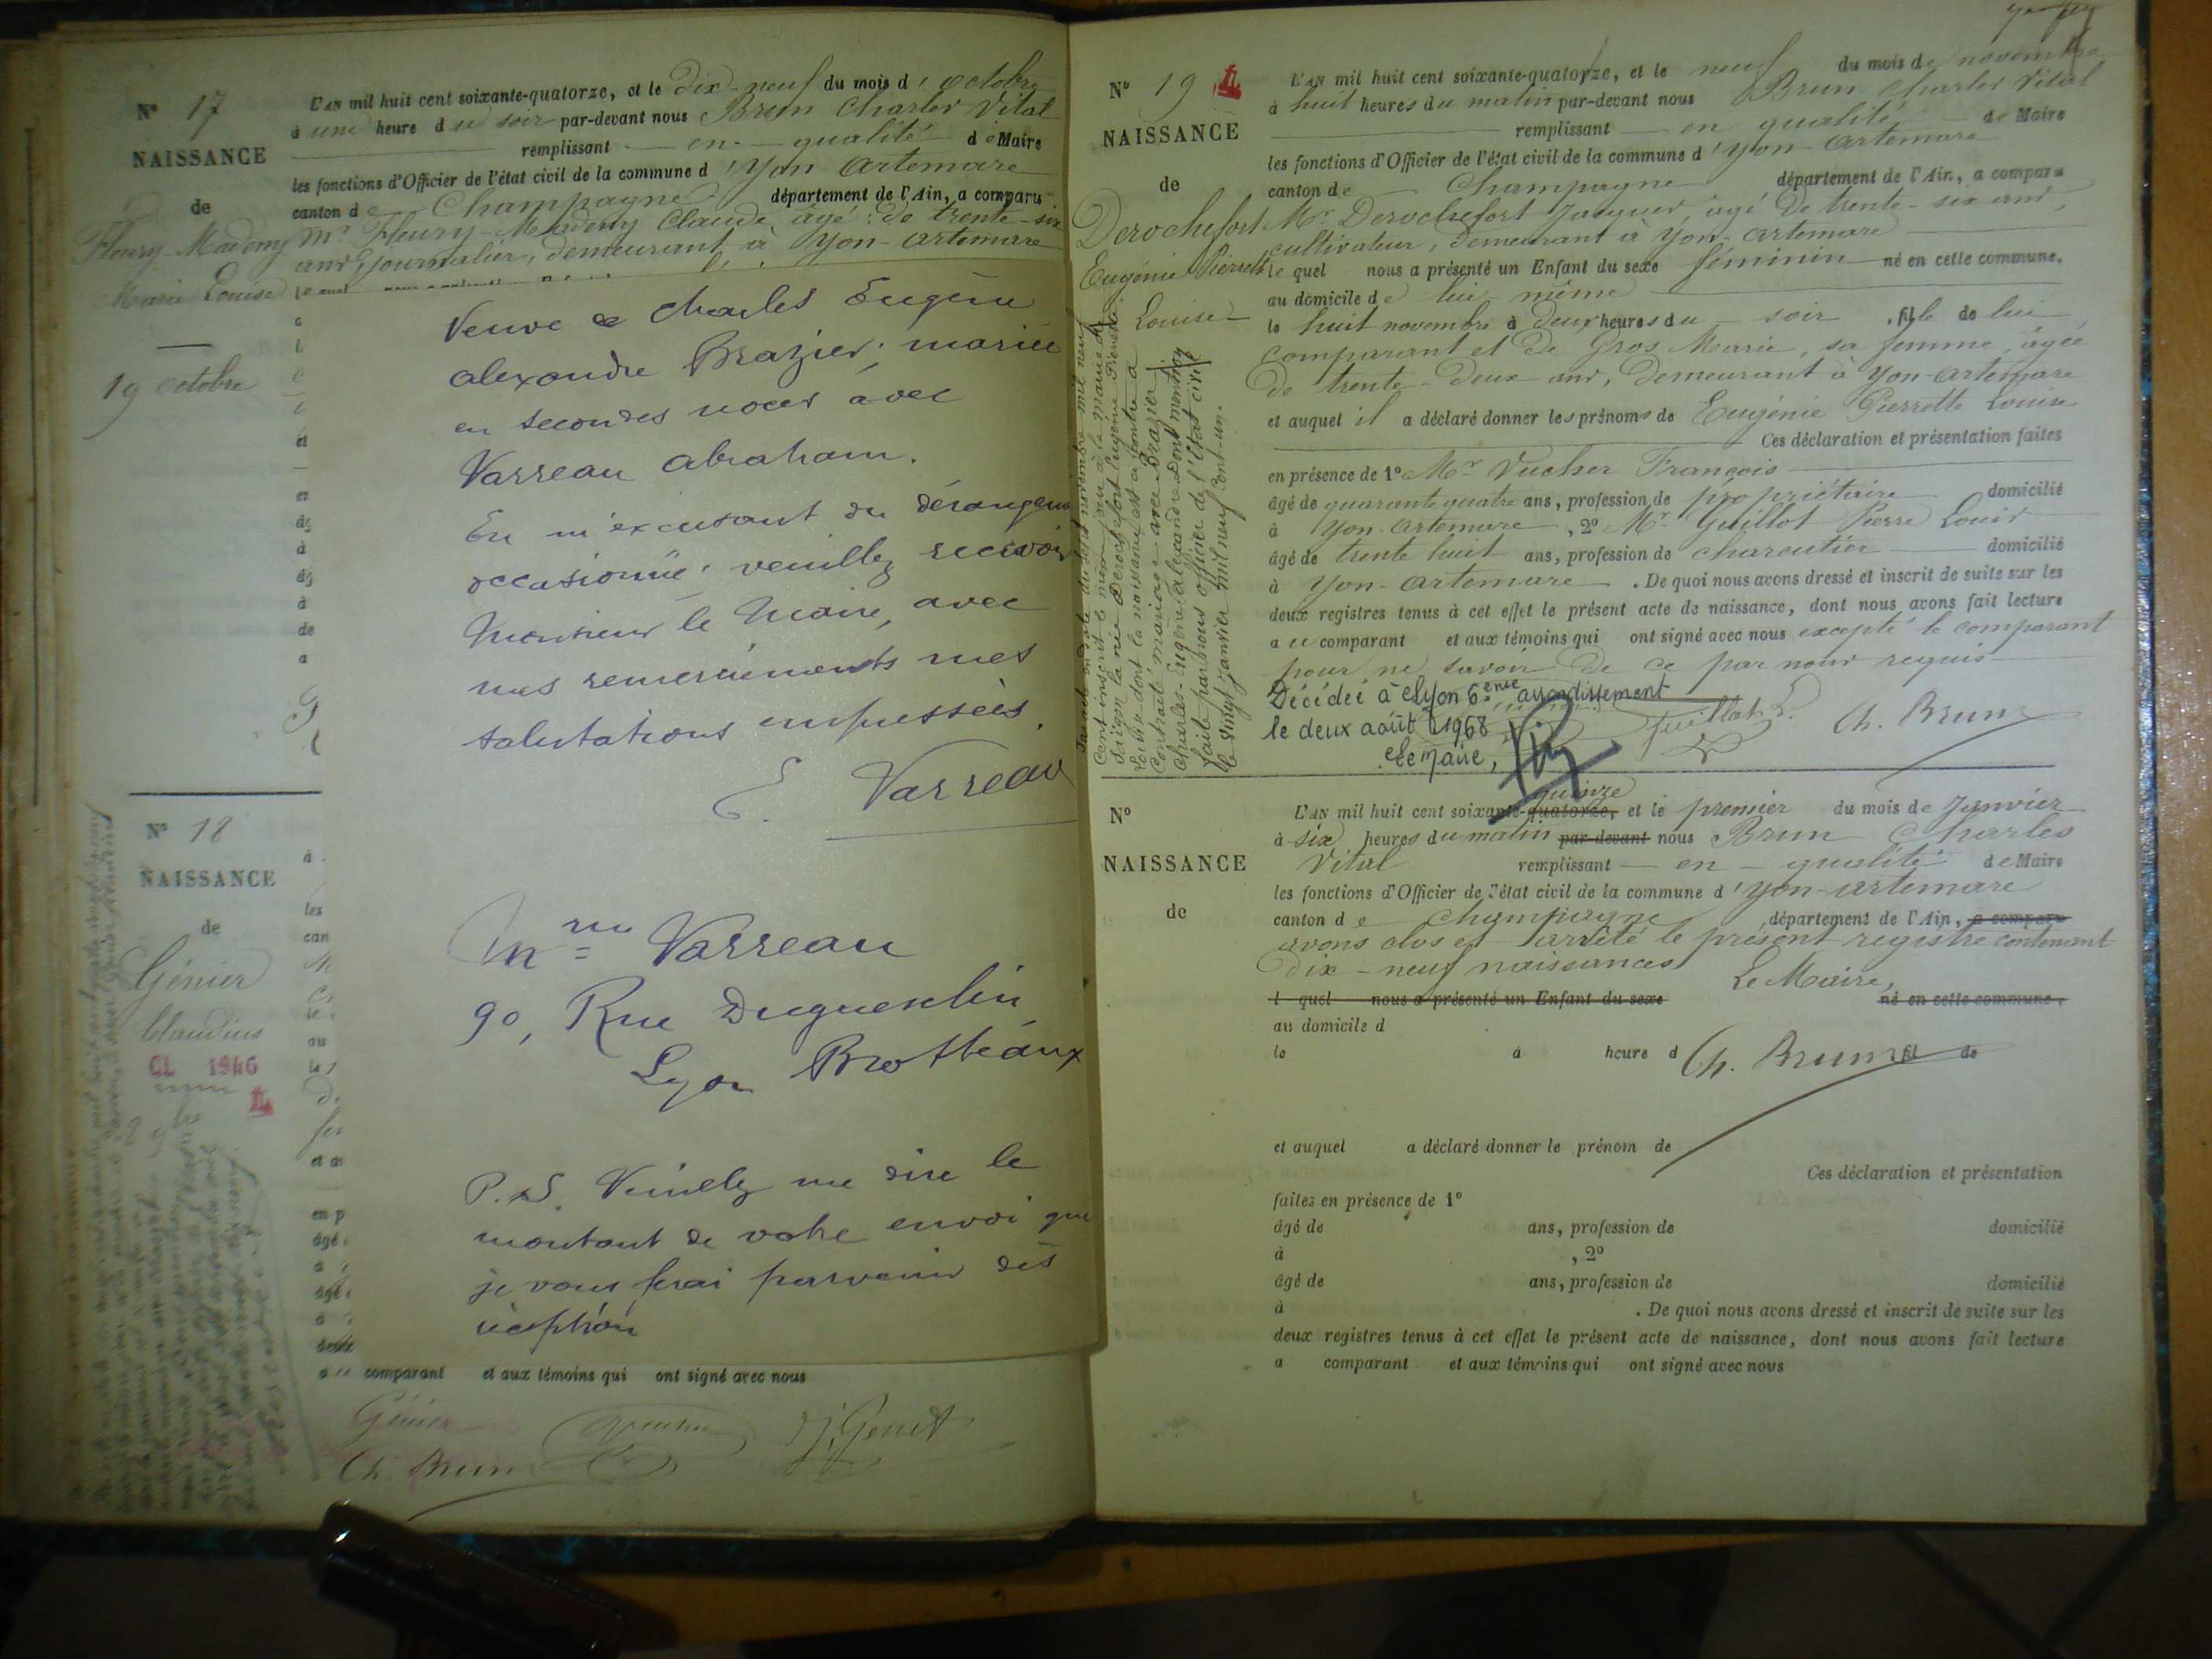 N° 17
NAISSANCE
de
Fleury-Mademy
Marie Louise
19 octobre
L'AN mil huit cent soixante-quatorze, et le dix-neuf du mois d'octobre
à une heure du soir par-devant nous Brun Charles Vital
remplissant en qualité de Maire
les fonctions d'Officier de l'état civil de la commune d'Yon-Artemare
canton de Champagne département de l'Ain, a comparu
Mr Fleury-Mademy Claude âgé de trente-six
ans, journalier, demeurant à Yon-Artemare
Veuve de Charles Eugène
alexandre Brazier, mariée
en secondes noces avec
Varreau abraham.
En m'excusant du
occasionnée, veuillez recevoir
Monsieur le Maire, avec
mes remerciements mes
salutations empressées.
E. Varreau
Mme Varreau
90, Rue Duguesclin
Lyon Brotteaux
P.S. Veuillez me dire le
montant de votre envoi que
je vous ferai parvenir dès
réception
N° 18
NAISSANCE
de
Génier
Claudius
CL 1946
au comparant et aux témoins qui ont signé avec nous
Génier
J. Genet
Ch. Brun
N° 19
NAISSANCE
de
Derochefort
Eugénie Pierrette
Louise
L'AN mil huit cent soixante-quatorze, et le neuf du mois de novembre
à huit heures du matin par-devant nous Brun Charles Vital
remplissant en qualité de Maire
les fonctions d'Officier de l'état civil de la commune d'Yon-Artemare
canton de Champagne département de l'Ain, a comparu
Mr Derochefort Jacques, âgé de trente-six ans,
cultivateur, demeurant à Yon-Artemare
le quel nous a présenté un Enfant du sexe féminin né en cette commune,
au domicile de lui-même
le huit novembre à deux heures du soir, fille de lui
comparant et de Gros Marie, sa femme, âgée
de trente-deux ans, demeurant à Yon-Artemare
et auquel il a déclaré donner les prénoms de Eugénie Pierrette Louise
Ces déclaration et présentation faites
en présence de 1° Mr Vucher François
âgé de quarante quatre ans, profession de propriétaire domicilié
à Yon-Artemare, 2° Mr Guillot Pierre Louis
âgé de trente huit ans, profession de charcutier domicilié
à Yon-Artemare. De quoi nous avons dressé et inscrit de suite sur les
deux registres tenus à cet effet le présent acte de naissance, dont nous avons fait lecture
au comparant et aux témoins qui ont signé avec nous excepté le comparant
pour ne savoir de ce par nous requis
Décédée à Lyon 6ème arrondissement
le deux août 1968
Le Maire,
Ch. Brun
contracté mariage avec Brazier
Charles-Eugène-Alexandre Dont mention
faite par nous officier de l'Etat civil
le vingt janvier mil neuf cent-un.
N°
NAISSANCE
de
quinze
L'AN mil huit cent soixante-quatorze, et le premier du mois de Janvier
à six heures du matin par-devant nous Brun Charles
Vital remplissant en qualité de Maire
les fonctions d'Officier de l'état civil de la commune d'Yon-Artemare
canton de Champagne département de l'Ain, a comparu
avons clos et arrêté le présent registre contenant
dix-neuf naissances Le Maire,
l quel nous a présenté un Enfant du sexe né en cette commune,
au domicile d
le à heure d fil de
Ch. Brun
et auquel a déclaré donner le prénom de
Ces déclaration et présentation
faites en présence de 1°
âgé de ans, profession de domicilié
à , 2°
âgé de ans, profession de domicilié
à . De quoi nous avons dressé et inscrit de suite sur les
deux registres tenus à cet effet le présent acte de naissance, dont nous avons fait lecture
a comparant et aux témoins qui ont signé avec nous